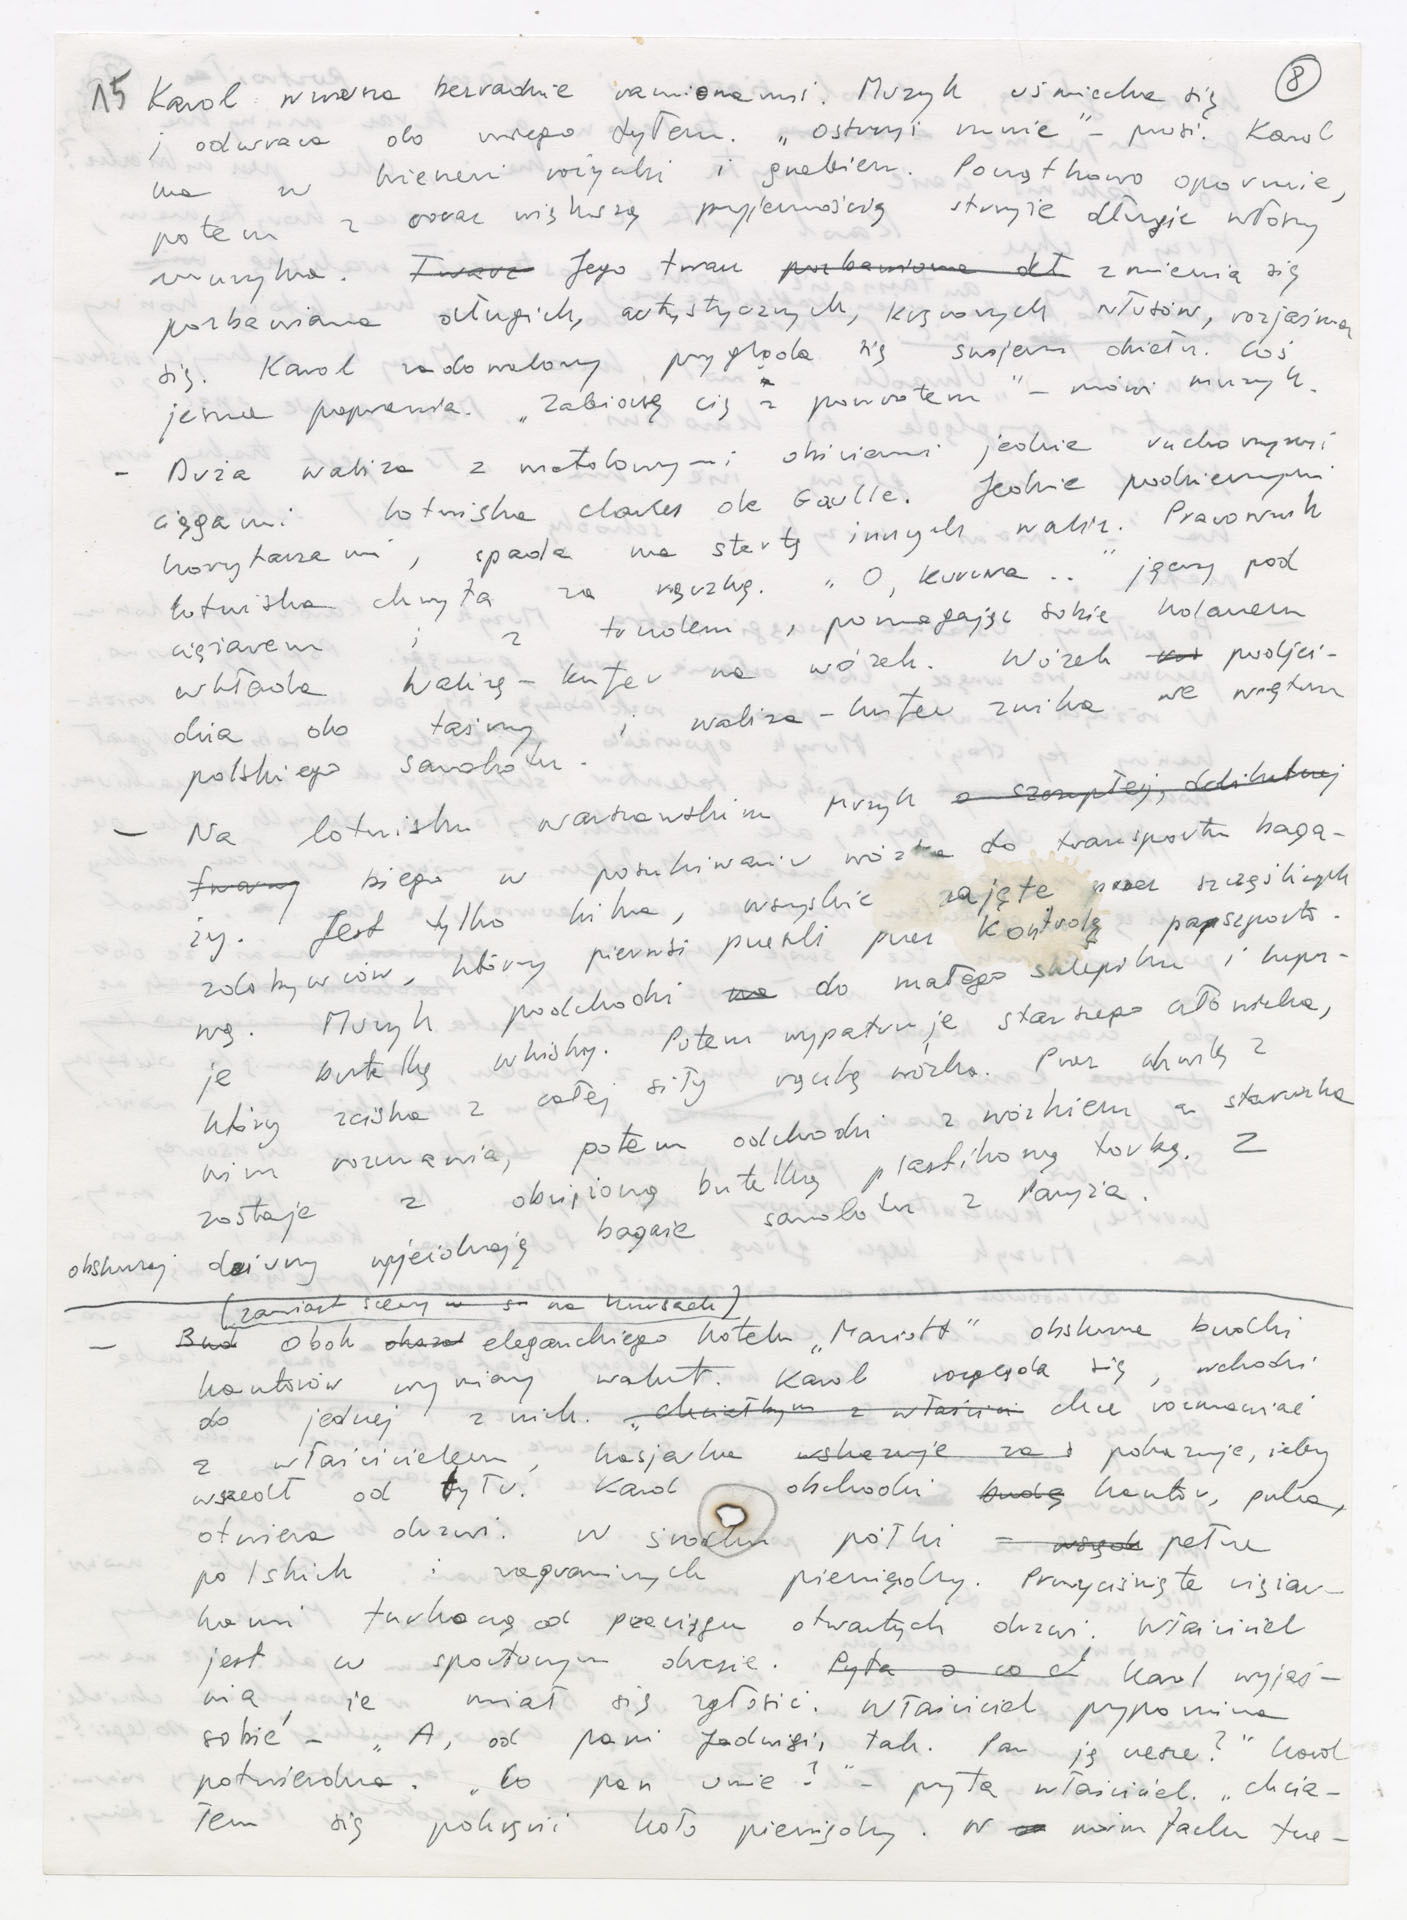 15 Karol wzrusza bezradnie ramionami. Muzyk uśmiecha się 8
i odwraca do niego tyłem. „Ostrzyż mnie" – prosi. Karol
ma w kieszeni nożyczki i grzebień. Początkowo opornie,
potem z coraz większą przyjemnością strzyże długie włosy
muzyka. Twarz Jego twarz pozbawiona dł zmienia się
pozbawiona długich, artystycznych, kręconych włosów, rozjaśnia
się. Karol zadowolony przygląda się swojemu dziełu. Coś
jeszcze poprawia. „Zabiorę cię z powrotem" – mówi muzyk.
– Duża waliza z metalowymi okuciami jedzie ruchomymi
ciągami lotniska Charles de Gaulle. Jedzie podziemnymi
korytarzami, spada na stertę innych waliz. Pracownik
lotniska chwyta za rączkę. „O, kurwa.." jęczy pod
ciężarem i z trudem, pomagając sobie kolanem
wkłada walizę–kufer na wózek. Wózek podjeż–
dża do taśmy i waliza–kufer znika we wnętrzu
polskiego samolotu.
– Na lotnisku warszawskim Muzyk o szczupłej, delikatnej
twarzy biega w poszukiwaniu wózka do transportu baga–
ży. Jest tylko kilka, wszystkie zajęte przez szczęśliwych
zdobywców, którzy pierwsi przeszli przez kontrolę paszporto–
wą. Muzyk podchodzi na do małego sklepiku i kupu–
je butelkę whisky. Potem wypatruje starszego człowieka,
który ściska z całej siły rączkę wózka. Przez chwilę z
nim rozmawia, potem odchodzi z wózkiem a staruszka
zostaje z obciążoną butelką plastikową torbą. Z
obskurnej dziury wyjeżdżają bagaże samolotu z Paryża.
(zamiast sceny w s na kursach)
– Bud Obok eleganckiego hotelu „Mariott" obskurne budki
kantorów wymiany walut. Karol rozgląda się, wchodzi
do jednej z nich. „Chciałbym z właścici chce rozmawiać
z właścicielem, kasjerka wskazuje za s pokazuje, żeby
wszedł od tyłu. Karol obchodzi budę kantor, puka,
otwiera drzwi. W środku półki – pełne
polskich i zagranicznych pieniędzy. Przyciśnięte ciężar–
kami furkoczą od przeciągu otwartych drzwi. Właściciel
jest w sportowym dresie. Pyta o co ch Karol wyjaś–
nia, że miał się zgłosić. Właściciel przypomina
sobie – „A, od pani Jadwigi, tak. Pan ją czesze?" Karol
potwierdza. „Co pan umie?" – pyta właściciel. „Chcia–
łem się pokręcić koło pieniędzy. W moim fachu trze–